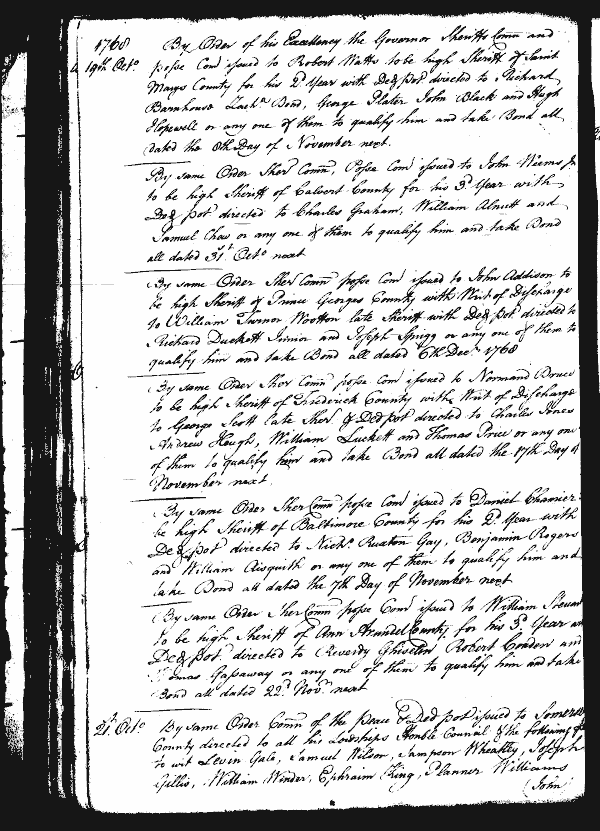 1768
19th Octo
By Order of his Excellency the Governor Sheriffs Comn and
posse Com issued to Robert Watts to be high Sheriff of Saint
Marys County for his 2d Year with Ded pot directed to Richard
Barnhouse Bond, George Plater John Black and Hugh
Hopewell or any one of them to qualify him and take Bond all
dated the 8th Day of November next.
By same Order Sher Comn, Posse Com issued to John Weems Jr
to be high Sheriff of Calvert County for his 3d Year with
Ded pot directed to Charles Graham, William Alnutt and
Samuel Chew or any one of them to qualify him and take Bond
all dated 31st Octo next
By same Order Sher Comn posse Com issued to John Addison to
be high Sheriff of Prince Georges County with Writ of Discharge
to William Turnor Wootton late Sheriff with Ded pot directed to
Richard Duckett Junior and Joseph Sprigg or any one of them to
qualify him and take Bond all dated 6th Decr 1768
By same Order Sher Comn posse Com issued to Normand Bruce
to be high Sheriff of Frederick County with Writ of Discharge
to George Scott late Sher & Ded pot directed to Charles Jones
Andrew Heugh, William Luckett and Thomas Price or any one
of them to qualify him and take Bond all dated the 17th Day of
November next.
By same Order Sher Comn posse Com issued to Daniel Chamier
be high Sheriff of Baltimore County for his 2d Year with
Ded pot directed to Nichs Ruxton Gay, Benjamin Rogers
and William Aisquith or any one of them to qualify him and
take Bond all dated the 7th Day of November next
By same Order Sher Comn posse Com issued to William Steuart
to be high Sheriff of Ann Arundel County for his 3d Year and
Ded pot directed to Reverdy Ghiselin Robert Couden and
Thomas Gassaway or any one of them to qualify him and take
Bond all dated 22d Novr next
21st Octo
By same Order Comn of the peace & ded pot issued to Somerset
County directed to all his Lordships Honble Council & the following
to wit Levin Gale, Samuel Wilson, Sampson Wheatly, Joseph
Gillis, William Winder, Ephraim King, Planner Williams
(John